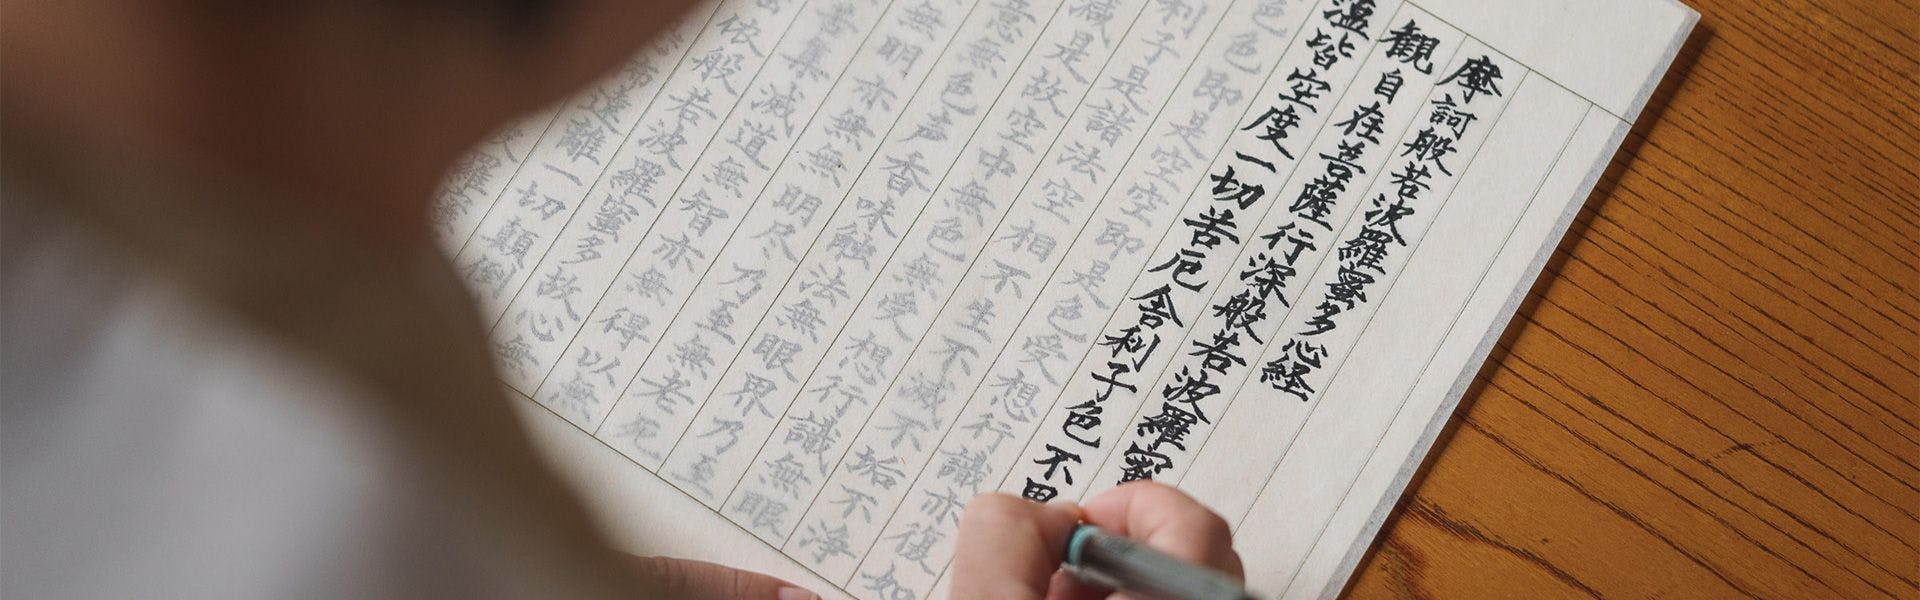 摩訶般若波羅蜜多心経
観自在菩薩行深般若波羅蜜
蘊皆空度一切苦厄舎利子色不
色色即是空空即是色受想行識亦復如
利子是諸法空相不生不滅不垢不浄
減是故空中無色無受想行識無眼
意無色声香味触法無眼界乃至
無明亦無無明尽乃至無老死
集滅道無智亦無得以無
依般若波羅蜜多故心無
遠離一切顛倒
羅蜜